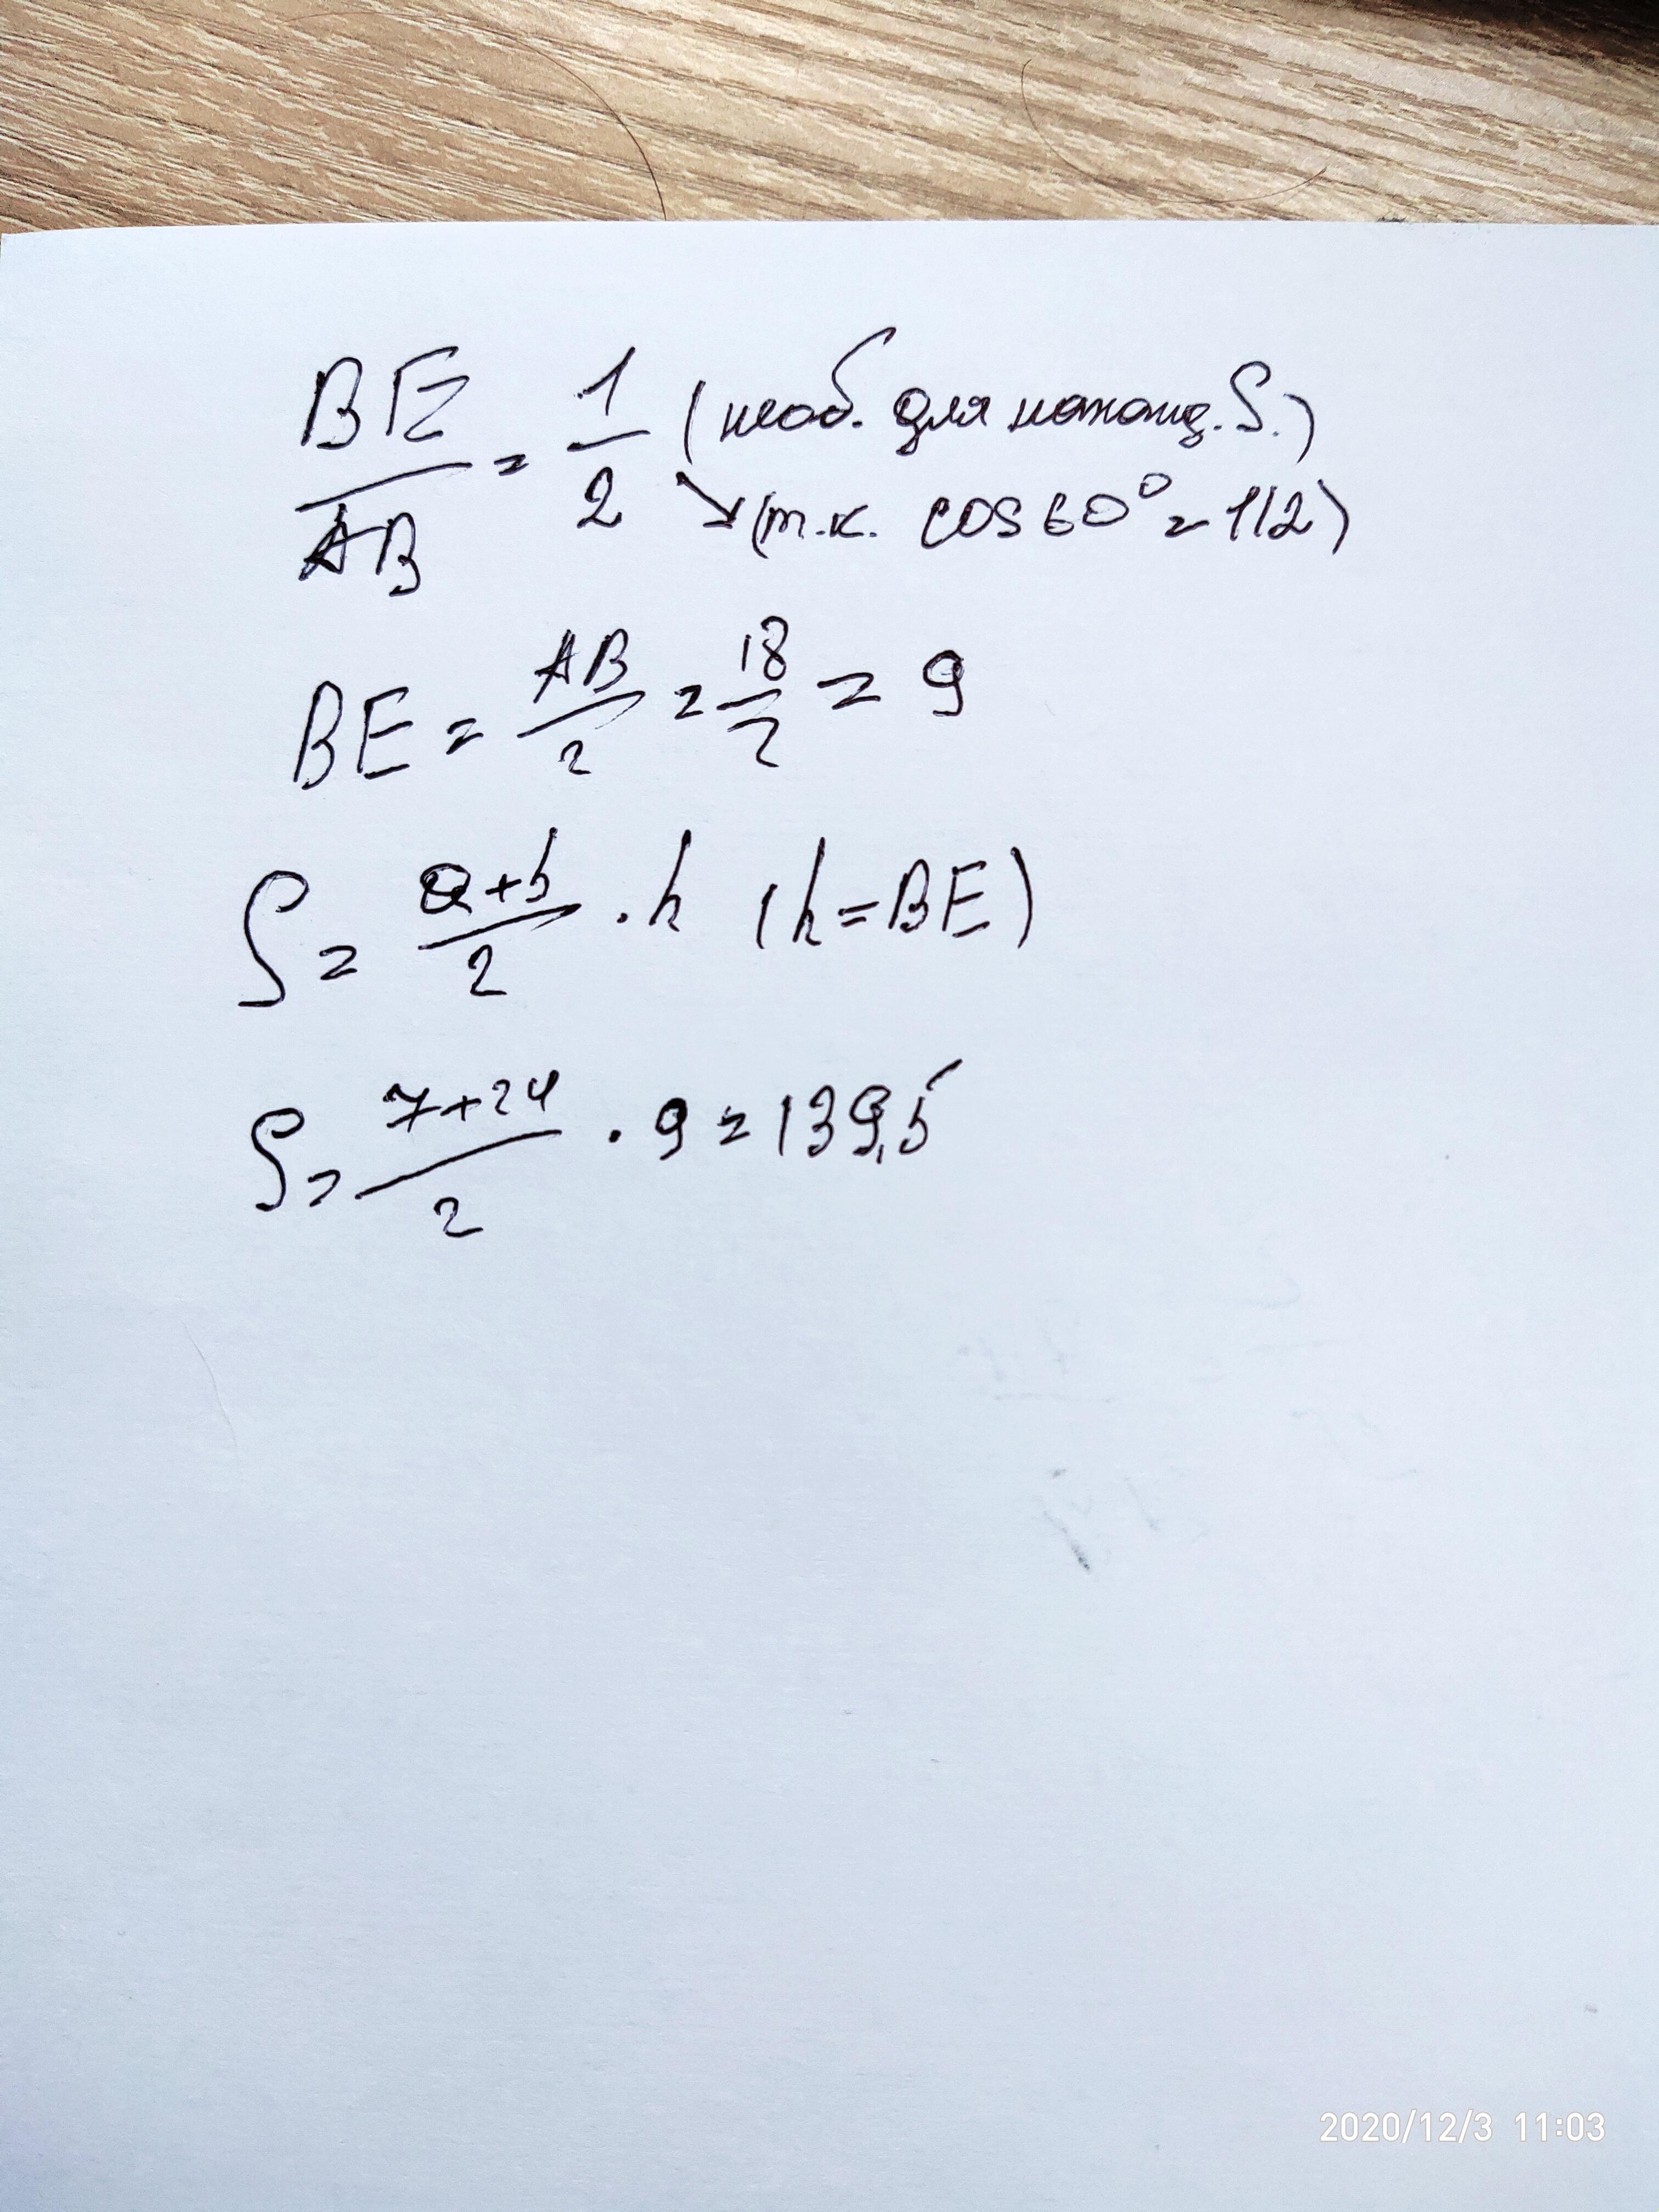 BE/AB = 1/2 (необ. для наханд. S.)
(т.к. cos 60° = 1/2)
BE = AB/2 = 18/2 = 9
S = a+b/2 · h (h = BE)
S = 7+24/2 · 9 = 139,5
2020/12/3 11:03